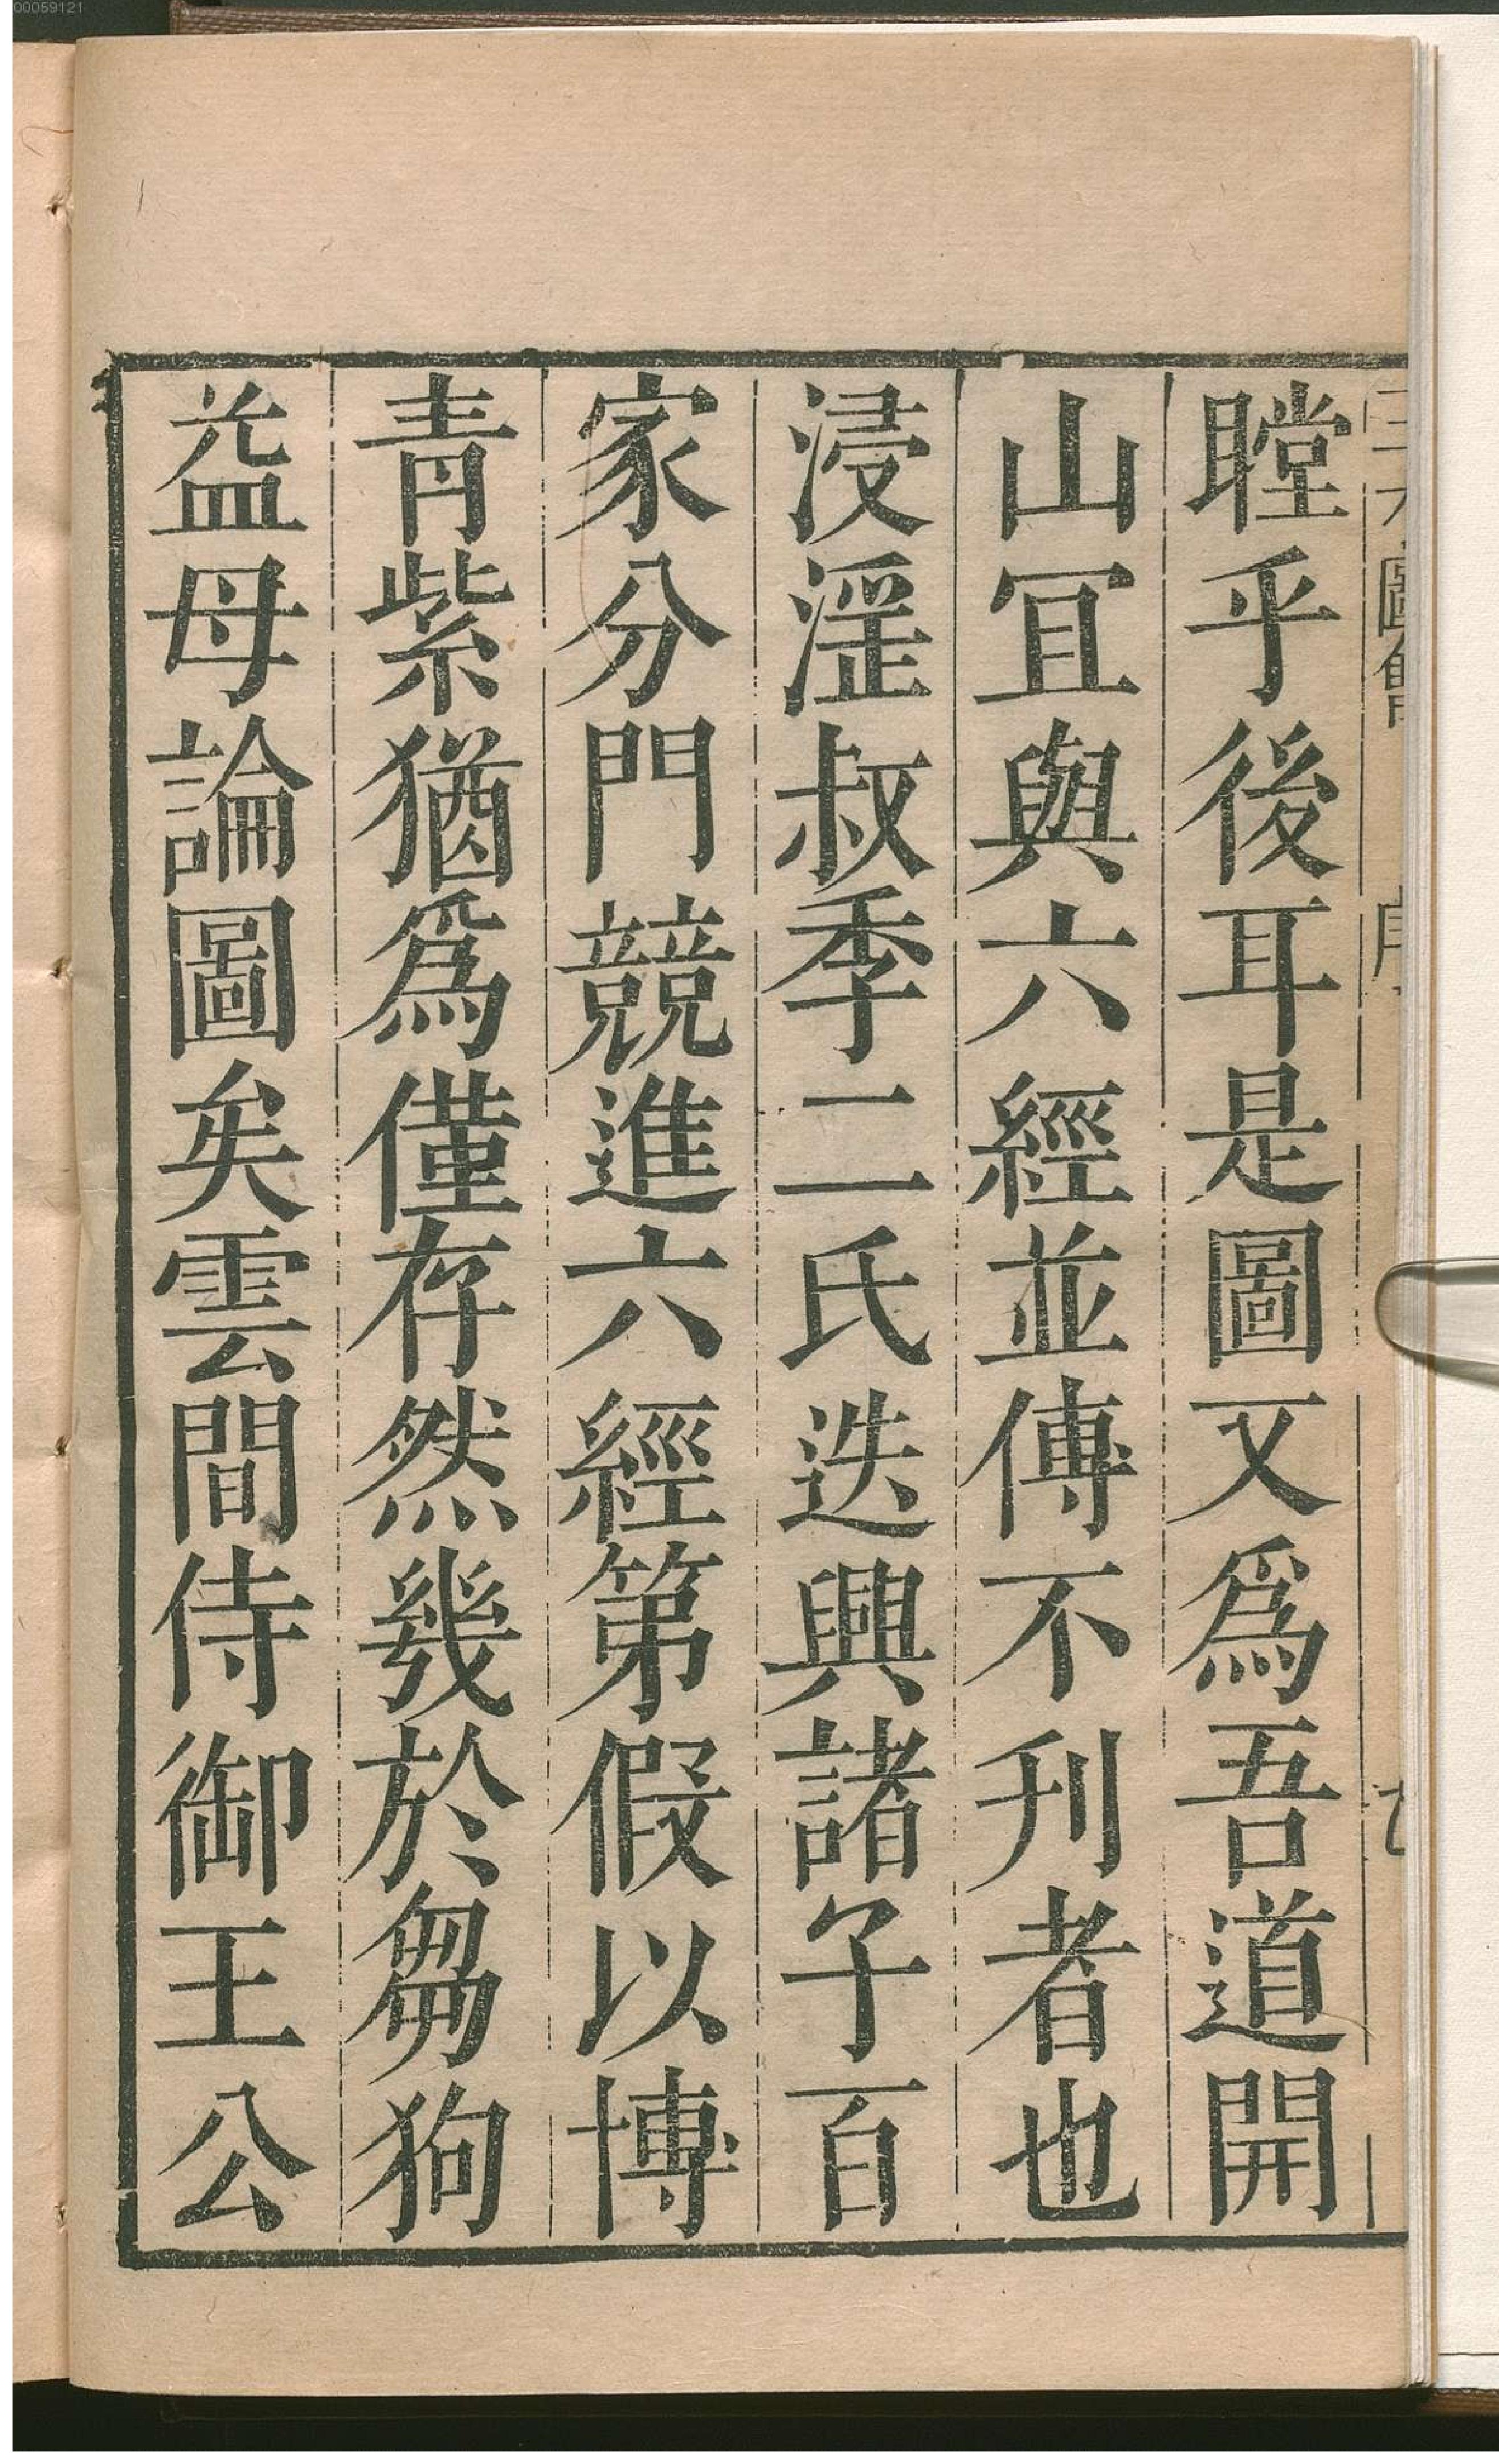 00059121
三才圖會 序
瞠乎後耳是圖又爲吾道開
山冝與六經並傳不刋者也
浸滛叔季二氏迭興諸子百
家分門競進六經第假以博
青紫猶爲僅存然幾於芻狗
益母論圖矣雲間侍御王公